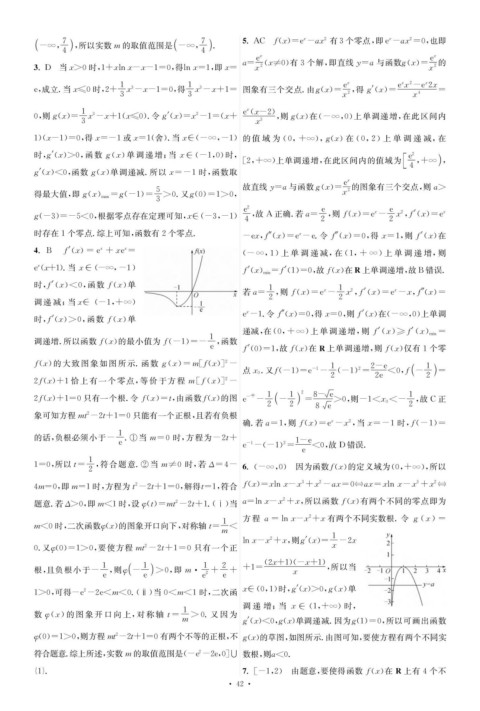 (-∞, 7/4), 所以实数 m 的取值范围是(-∞, 7/4).
3. D 当 x>0 时, 1+xln x-x-1=0, 得ln x=1, 即 x=
e, 成立. 当 x≤0 时, 2+1/3x³-x-1=0, 得1/3x³-x+1=
0, 则 g(x)=1/3x³-x+1(x≤0). 令 g′(x)=x²-1=(x+
1)(x-1)=0, 得 x=-1 或 x=1(舍). 当 x∈(-∞,-1)
时, g′(x)>0, 函数 g(x)单调递增; 当 x∈(-1,0)时,
g′(x)<0, 函数 g(x)单调递减. 所以 x=-1 时, 函数取
得最大值, 即 g(x)max=g(-1)=5/3>0. 又g(0)=1>0,
g(-3)=-5<0, 根据零点存在定理可知, x∈(-3,-1)
时存在 1 个零点. 综上可知, 函数有 2 个零点.
4. B f′(x)=eˣ+xeˣ=
eˣ(x+1). 当 x∈(-∞,-1)
时, f′(x)<0, 函数 f(x)单
调递减; 当x∈(-1,+∞)
时, f′(x)>0, 函数 f(x)单
f(x)
-1
O
x
1/e
调递增. 所以函数 f(x)的最小值为 f(-1)=-1/e, 函数
f(x)的大致图象如图所示. 函数 g(x)=m[f(x)]²-
2f(x)+1 恰上有一个零点, 等价于方程 m[f(x)]²-
2f(x)+1=0 只有一个根. 令 f(x)=t, 由函数 f(x)的图
象可知方程 mt²-2t+1=0 只能有一个正根, 且若有负根
的话, 负根必须小于-1/e. ①当 m=0 时, 方程为-2t+
1=0, 所以 t=1/2, 符合题意. ②当 m≠0 时, 若 Δ=4-
4m=0, 即 m=1 时, 方程为 t²-2t+1=0, 解得t=1, 符合
题意. 若 Δ>0, 即 m<1 时, 设 φ(t)=mt²-2t+1. (ⅰ)当
m<0 时, 二次函数φ(x)的图象开口向下, 对称轴 t=1/m<
0. 又φ(0)=1>0, 要使方程 mt²-2t+1=0 只有一个正
根, 且负根小于-1/e, 则φ(-1/e)>0, 即 m·1/e²+2/e+
1>0, 可得-e²-2e<m<0. (ⅱ)当 0<m<1 时, 二次函
数 φ(x)的图象开口向上, 对称轴 t=1/m>0. 又因为
φ(0)=1>0, 则方程 mt²-2t+1=0 有两个不等的正根, 不
符合题意. 综上所述, 实数 m 的取值范围是(-e²-2e,0]∪
{1}.
5. AC f(x)=eˣ-ax² 有 3 个零点, 即 eˣ-ax²=0, 也即
a=eˣ/x²(x≠0)有 3 个解, 即直线 y=a 与函数g(x)=eˣ/x²的
图象有三个交点. 由g(x)=eˣ/x², 得 g′(x)=(eˣx²-eˣ2x)/x⁴=
eˣ(x-2)/x³, 则 g(x)在(-∞,0)上单调递增, 在此区间内
的值域为(0,+∞), g(x)在(0,2)上单调递减, 在
[2,+∞)上单调递增, 在此区间内的值域为[e²/4,+∞),
故直线 y=a 与函数 g(x)=eˣ/x²的图象有三个交点, 则 a>
e²/4, 故 A 正确. 若 a=e/2, 则 f(x)=eˣ-e/2x², f′(x)=eˣ
-ex, f″(x)=eˣ-e. 令 f″(x)=0, 得 x=1, 则 f′(x)在
(-∞,1)上单调递减, 在(1,+∞)上单调递增, 则
f′(x)min=f′(1)=0, 故 f(x)在 R 上单调递增, 故 B 错误.
若 a=1/2, 则 f(x)=eˣ-1/2x², f′(x)=eˣ-x, f″(x)=
eˣ-1. 令 f″(x)=0, 得 x=0, 则 f′(x)在(-∞,0)上单调
递减, 在(0,+∞)上单调递增, 则 f′(x)≥f′(x)min=
f′(0)=1, 故 f(x)在 R 上单调递增, 则 f(x)仅有 1 个零
点 x₀. 又f(-1)=e⁻¹-1/2(-1)²=(2-e)/2e<0, f(-1/2)=
-1/2(-1/2)²=(8-√e)/(8√e)>0, 则-1<x₀<-1/2, 故 C 正
确. 若 a=1, 则 f(x)=eˣ-x², 当 x=-1 时, f(-1)=
e⁻¹-(-1)²=(1-e)/e<0, 故 D 错误.
6. (-∞,0) 因为函数f(x)的定义域为(0,+∞), 所以
f(x)=xln x-x³+x²-ax=0⇔ax=xln x-x³+x²⇔
a=ln x-x²+x, 所以函数 f(x)有两个不同的零点即为
方程 a=ln x-x²+x 有两个不同实数根. 令 g(x)=
ln x-x²+x, 则g′(x)=1/x-2x
+1=(2x+1)(-x+1)/x, 所以当
x∈(0,1)时, g′(x)>0, g(x)单
调递增; 当 x∈(1,+∞)时,
y
2
1
-2 -1 O 1 2 3 4 x
-1
y=a
-2
-3
g′(x)<0, g(x)单调递减. 因为g(1)=0, 所以可画出函数
g(x)的草图, 如图所示. 由图可知, 要使方程有两个不同实
数根, 则a<0.
7. [-1,2) 由题意, 要使得函数 f(x)在 R 上有 4 个不
· 42 ·